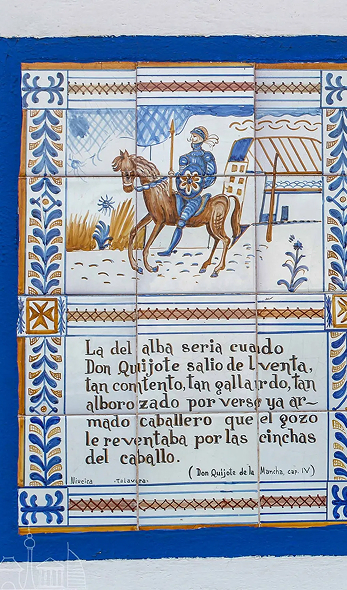 La del alba seria cuando
Don Quijote salio de la venta,
tan contento, tan gallardo, tan
alborozado por verse ya ar-
mado caballero que el gozo
le reventaba por las cinchas
del caballo.
(Don Quijote de la Mancha, cap. IV)
Niveira -Talavera-